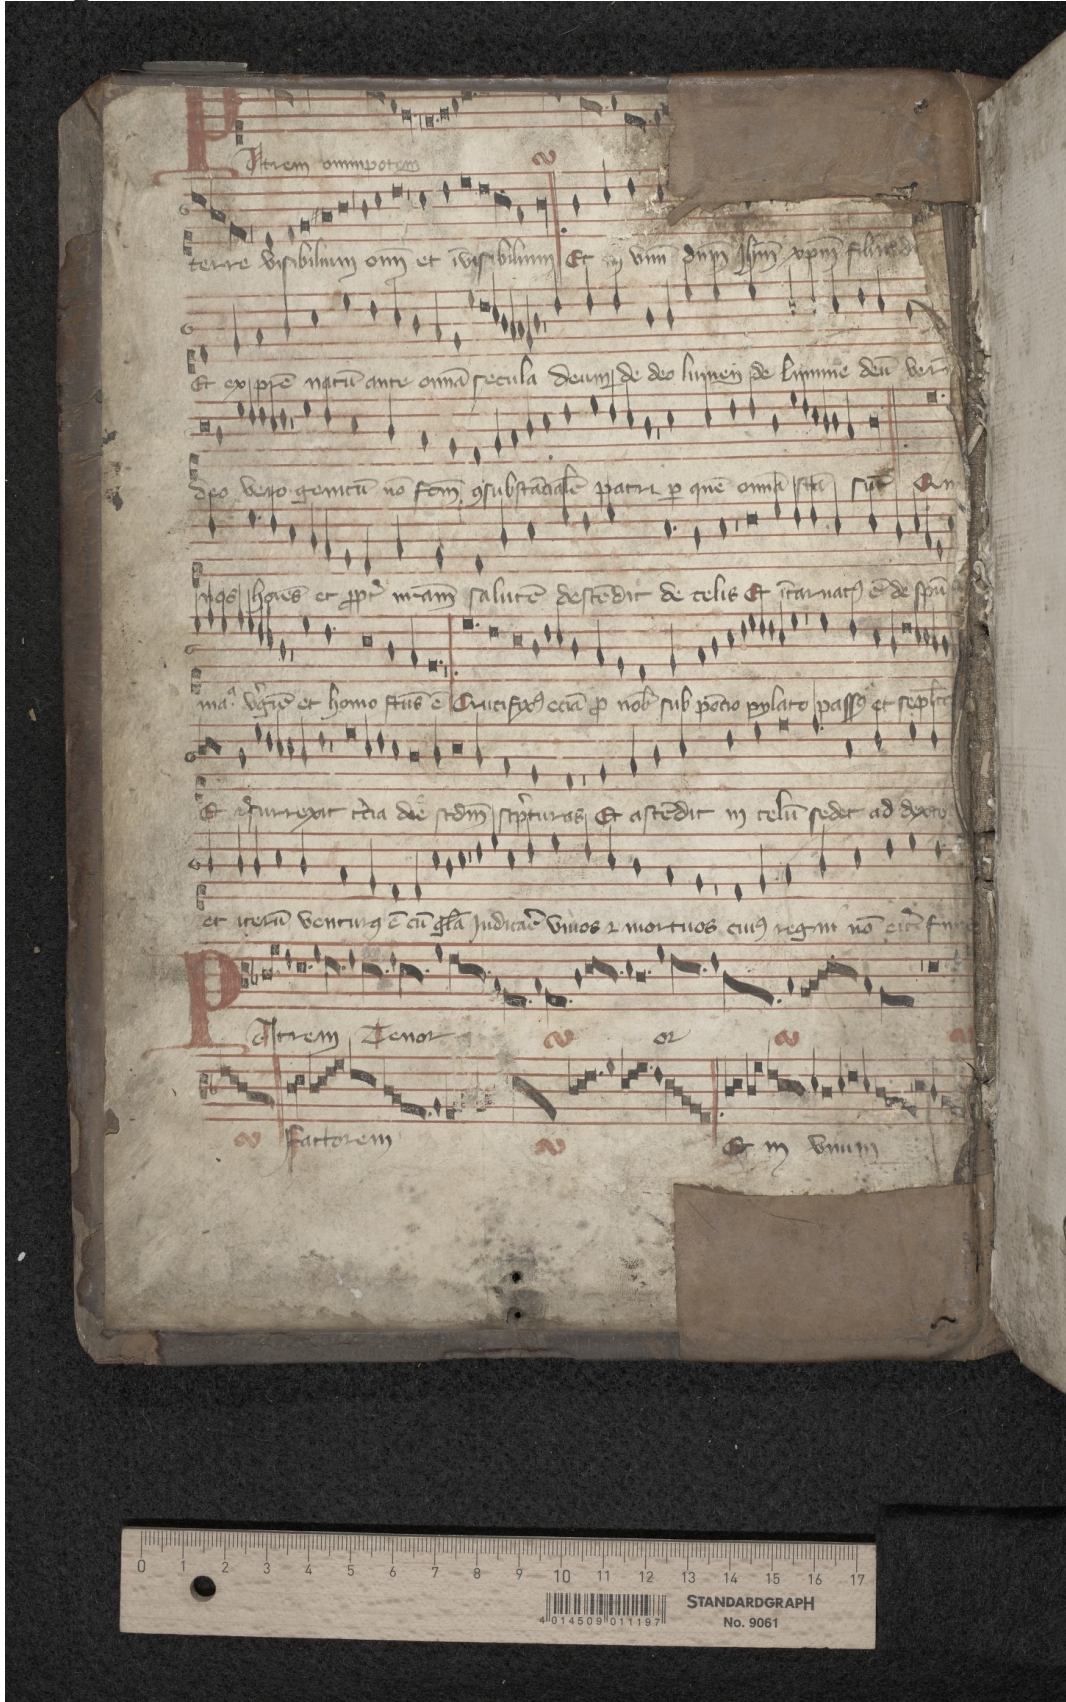 Patrem omnipotem
terre visibilium oim et ivisibilium Et in vnu dnm Ihm xpm filiu d
Et ex pre natu ante omia secula deum de deo lumen de lumine deu ver
deo vero genitu no fcm 9substacialē patri p que omia fca sut
nos hoies et ppt nram salute descēdit de celis Et icarnat9 ē de spu
ma. vgie et homo fcus ē Crucifix9 ecia p nob sub pocio pylato pass9 et sepl
Et resurrexit tcia die scdm scpturas Et ascēdit in celu sedet ad dext
et iteru ventur9 ē cu gla Judicare viuos 2 mortuos cui9 regni no erit
Patrem Tenor or
Factorem Et in vnum
0 1 2 3 4 5 6 7 8 9 10 11 12 13 14 15 16 17
STANDARDGRAPH
No. 9061
4 014509 011197